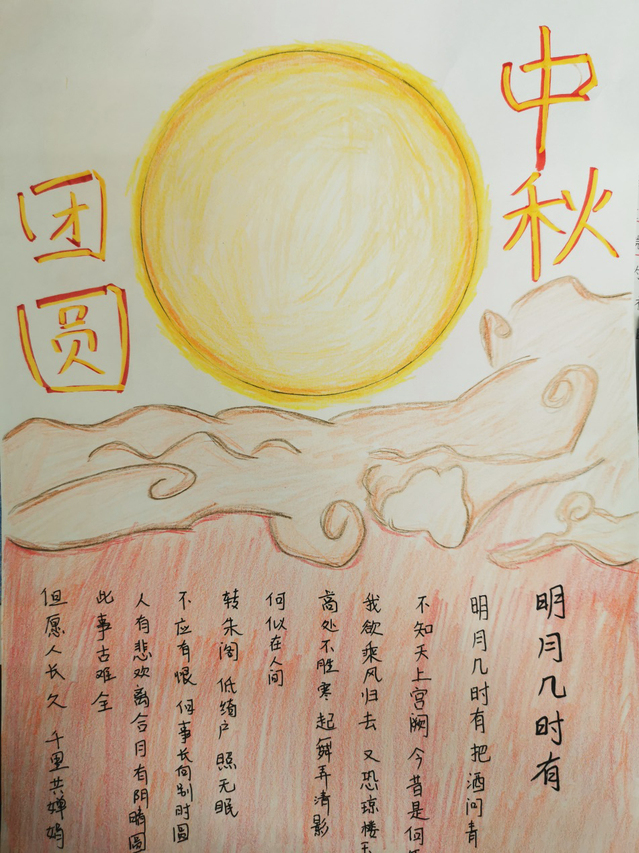 中秋
团圆
明月几时有
明月几时有 把酒问青
不知天上宫阙 今昔是何
我欲乘风归去 又恐琼楼
高处不胜寒 起舞弄清影
何似在人间
转朱阁 低绮户 照无眠
不应有恨 何事长向别时圆
人有悲欢离合月有阴晴圆
此事古难全
但愿人长久 千里共婵娟